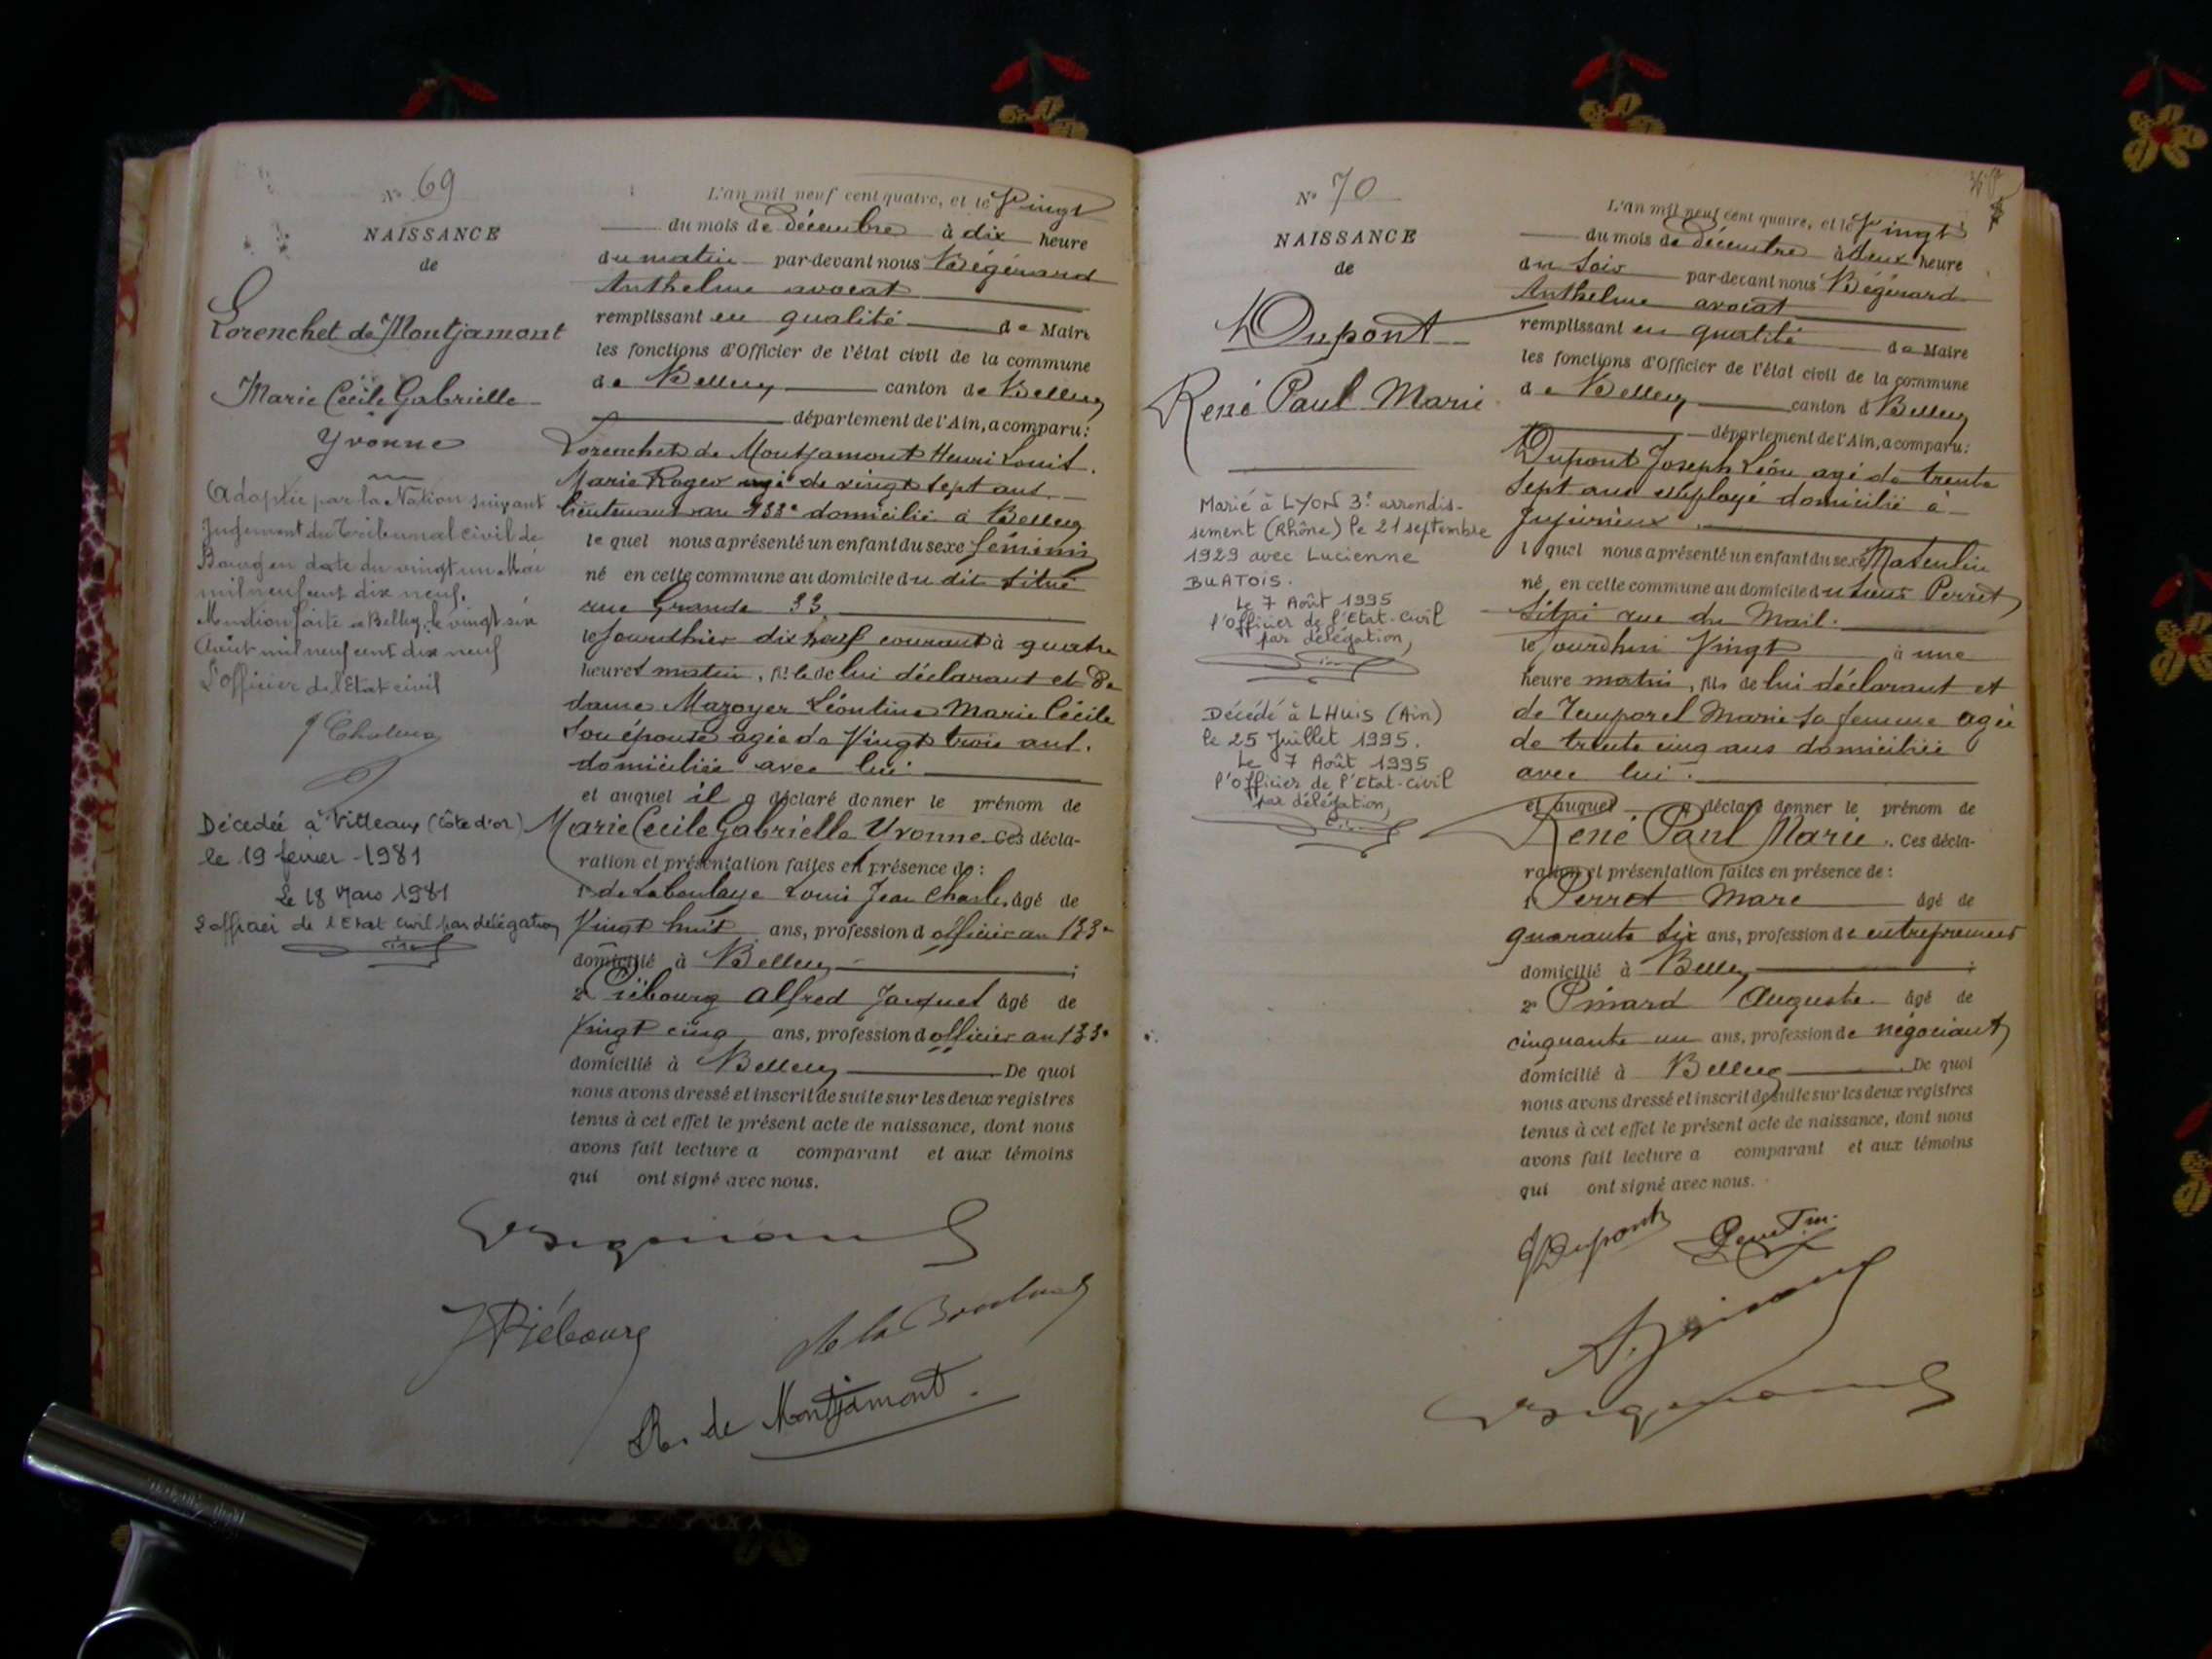 N° 69
NAISSANCE
de
Lorenchet de Montjamont
Marie Cécile Gabrielle
Yvonne
Adoptée par la Nation suivant
Jugement du Tribunal civil de
Bourg en date du vingt un Mai
mil neuf cent dix neuf.
Mention faite à Belley, le vingt six
Août mil neuf cent dix neuf
L'officier de l'Etat civil
Décédée à Vitteaux (Côte d'or)
le 19 février 1981
Le 18 Mars 1981
L'officier de l'Etat Civil par délégation
L'an mil neuf cent quatre, et le Vingt
du mois de décembre à dix heure
du matin par-devant nous Bégérard
Anthelme avocat
remplissant en qualité de Maire
les fonctions d'Officier de l'état civil de la commune
de Belley canton de Belley
département de l'Ain, a comparu:
Lorenchet de Montjamont Henri Louis
Marie Roger agé de vingt sept ans
lieutenant au 133e domicilié à Belley
le quel nous a présenté un enfant du sexe féminin
né en cette commune au domicile du dit situé
rue Grande 33
le Jourdhier dix neuf courant à quatre
heures matin, fille de lui déclarant et de
dame Mazoyer Léontine Marie Cécile
son épouse agée de Vingt trois ans.
domiciliée avec lui
et auquel il a déclaré donner le prénom de
Marie Cecile Gabrielle Yvonne. Ces décla-
ration et présentation faites en présence de:
1° de Laboulaye Louis Jean Charles, âgé de
Vingt huit ans, profession d officier au 133e
domicilié à Belley ;
2° Piébourg Alfred Jacques âgé de
Vingt cinq ans, profession d officier au 133e
domicilié à Belley De quoi
nous avons dressé et inscrit de suite sur les deux registres
tenus à cet effet le présent acte de naissance, dont nous
avons fait lecture a comparant et aux témoins
qui ont signé avec nous.
Piébourg
de la Boulaye
R. de Montjamont.
N° 70
NAISSANCE
de
Dupont
René Paul Marie
Marié à LYON 3e arrondis-
sement (Rhône) le 21 septembre
1929 avec Lucienne
BUATOIS.
Le 7 Août 1995
l'Officier de l'Etat-Civil
par délégation,
Décédé à LHuis (Ain)
le 25 Juillet 1995.
Le 7 Août 1995
l'Officier de l'Etat-Civil
par délégation,
L'an mil neuf cent quatre, et le Vingt
du mois de décembre à deux heure
du soir par-devant nous Bégérard
Anthelme avocat
remplissant en qualité de Maire
les fonctions d'Officier de l'état civil de la commune
de Belley canton d Belley
département de l'Ain, a comparu:
Dupont Joseph Léon agé de trente
sept ans employé domicilié à
Jujurieux
l quel nous a présenté un enfant du sexe Masculin
né en cette commune au domicile du sieur Perret
situé rue du Mail.
le Jourdhui Vingt à une
heure matin, fils de lui déclarant et
de Temporel Marie sa femme agée
de trente cinq ans domiciliée
avec lui.
et auquel a déclaré donner le prénom de
René Paul Marie. Ces décla-
ration et présentation faites en présence de:
1° Perret Marc âgé de
quarante six ans, profession de entrepreneur
domicilié à Belley ;
2° Pinard Auguste âgé de
cinquante un ans, profession de négociant
domicilié à Belley De quoi
nous avons dressé et inscrit de suite sur les deux registres
tenus à cet effet le présent acte de naissance, dont nous
avons fait lecture a comparant et aux témoins
qui ont signé avec nous.
JDupont Perret M.